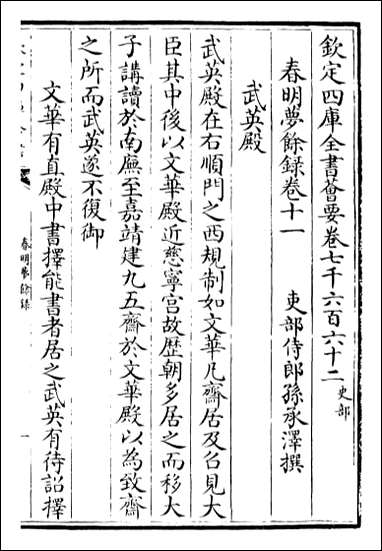 欽定四庫全書薈要卷七千六百六十二 史部
春明夢餘録卷十一　　吏部侍郎孫承澤撰
武英殿
武英殿在右順門之西規制如文華凡齋居及召見大
臣其中後以文華殿近慈寧宫故歴朝多居之而移大
子講讀於南廡至嘉靖建九五齋於文華殿以為致齋
之所而武英遂不復御
文華有直殿中書擇能書者居之武英有待詔擇
春明夢餘録
一